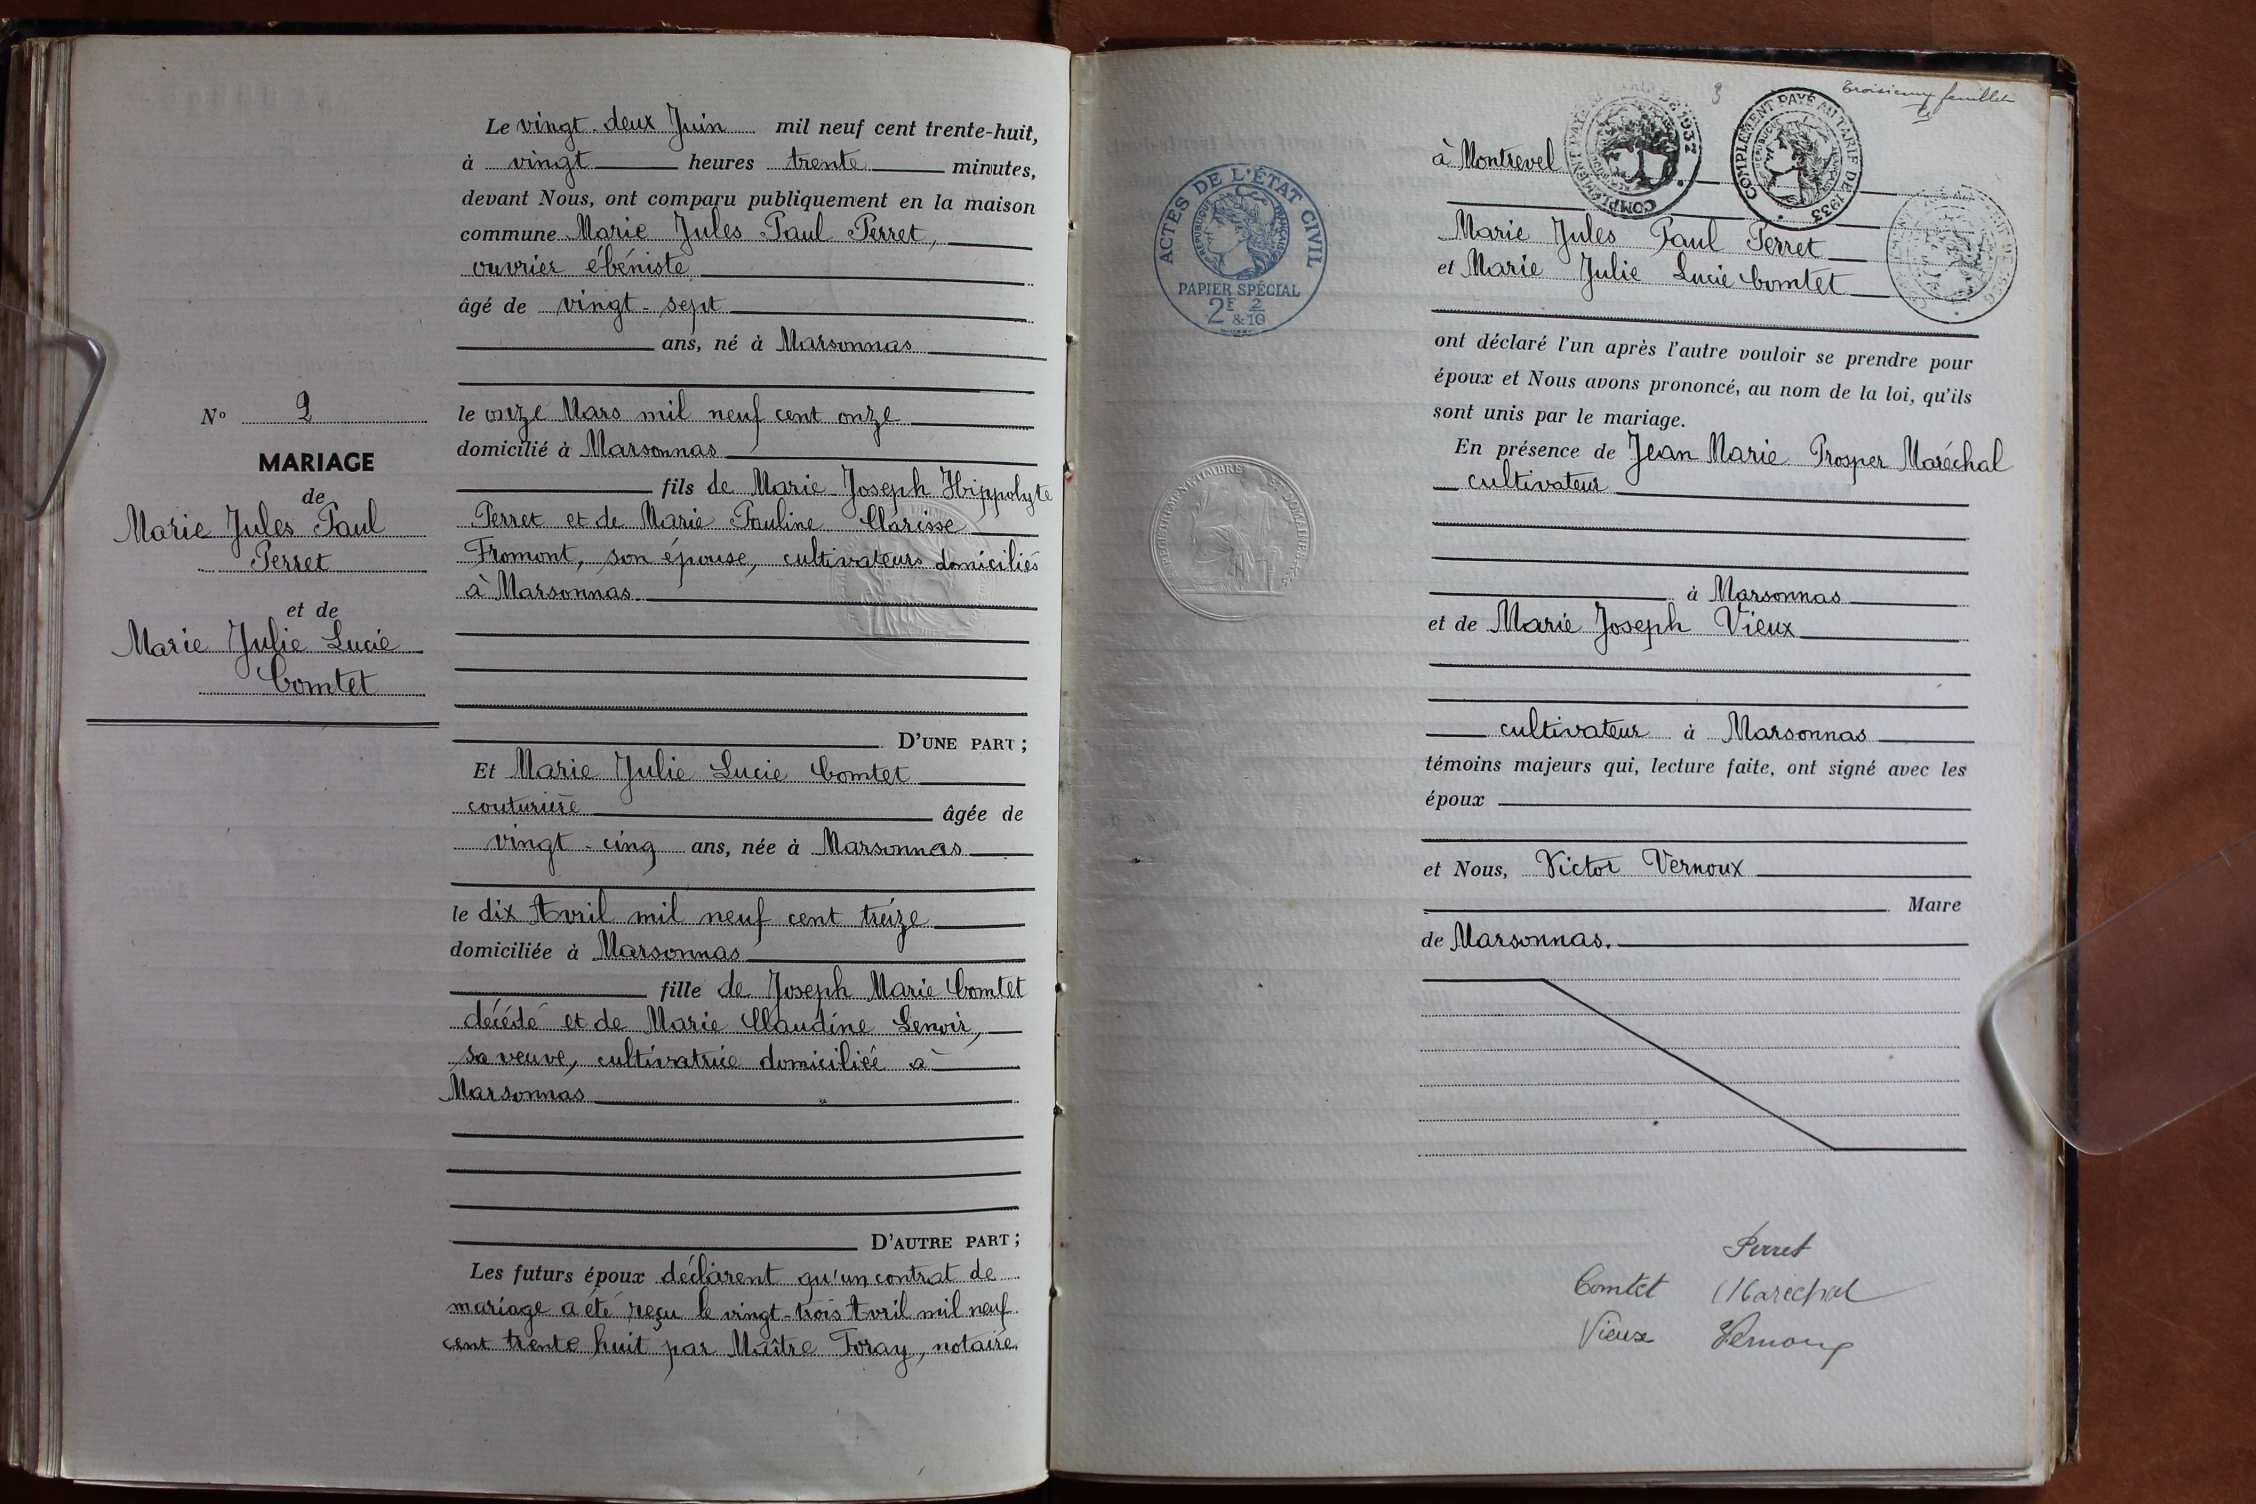 N° 2
MARIAGE
de
Marie Jules Paul
Perret
et de
Marie Julie Lucie
Comtet
Le vingt-deux Juin mil neuf cent trente-huit,
à vingt heures trente minutes,
devant Nous, ont comparu publiquement en la maison
commune Marie Jules Paul Perret,
ouvrier ébéniste
âgé de vingt-sept
ans, né à Marsonnas
le onze Mars mil neuf cent onze
domicilié à Marsonnas
fils de Marie Joseph Hippolyte
Perret et de Marie Pauline Clarisse
Fromont, son épouse, cultivateurs domiciliés
à Marsonnas.
D'UNE PART;
Et Marie Julie Lucie Comtet
couturière âgée de
vingt-cinq ans, née à Marsonnas
le dix Avril mil neuf cent treize
domiciliée à Marsonnas
fille de Joseph Marie Comtet
décédé et de Marie Claudine Lenoir,
sa veuve, cultivatrice domiciliée à
Marsonnas
D'AUTRE PART;
Les futurs époux déclarent qu'un contrat de
mariage a été reçu le vingt-trois Avril mil neuf
cent trente huit par Maître Foray, notaire
3
troisième feuillet
à Montrevel
COMPLÉMENT PAYÉ AU TARIF DE 1933
RÉPUBLIQUE FRANÇAISE
ACTES DE L'ÉTAT CIVIL
RÉPUBLIQUE FRANÇAISE
PAPIER SPÉCIAL
2F & 2/10
Marie Jules Paul Perret
et Marie Julie Lucie Comtet
ont déclaré l'un après l'autre vouloir se prendre pour
époux et Nous avons prononcé, au nom de la loi, qu'ils
sont unis par le mariage.
En présence de Jean Marie Prosper Maréchal
cultivateur
à Marsonnas
et de Marie Joseph Vieux
cultivateur à Marsonnas
témoins majeurs qui, lecture faite, ont signé avec les
époux
et Nous, Victor Vernoux
Maire
de Marsonnas.
Perret
Comtet Maréchal
Vieux Vernoux